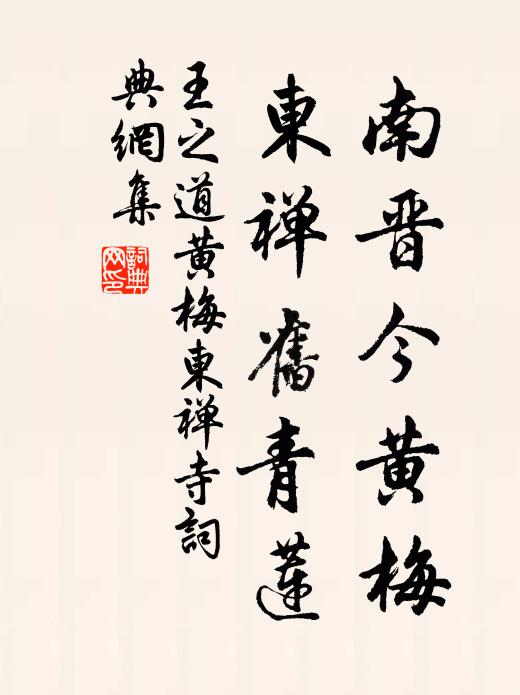 南晋今黄梅
東禅舊青蓮
王之道黄梅東禅寺詞
典網集
詞典
网印